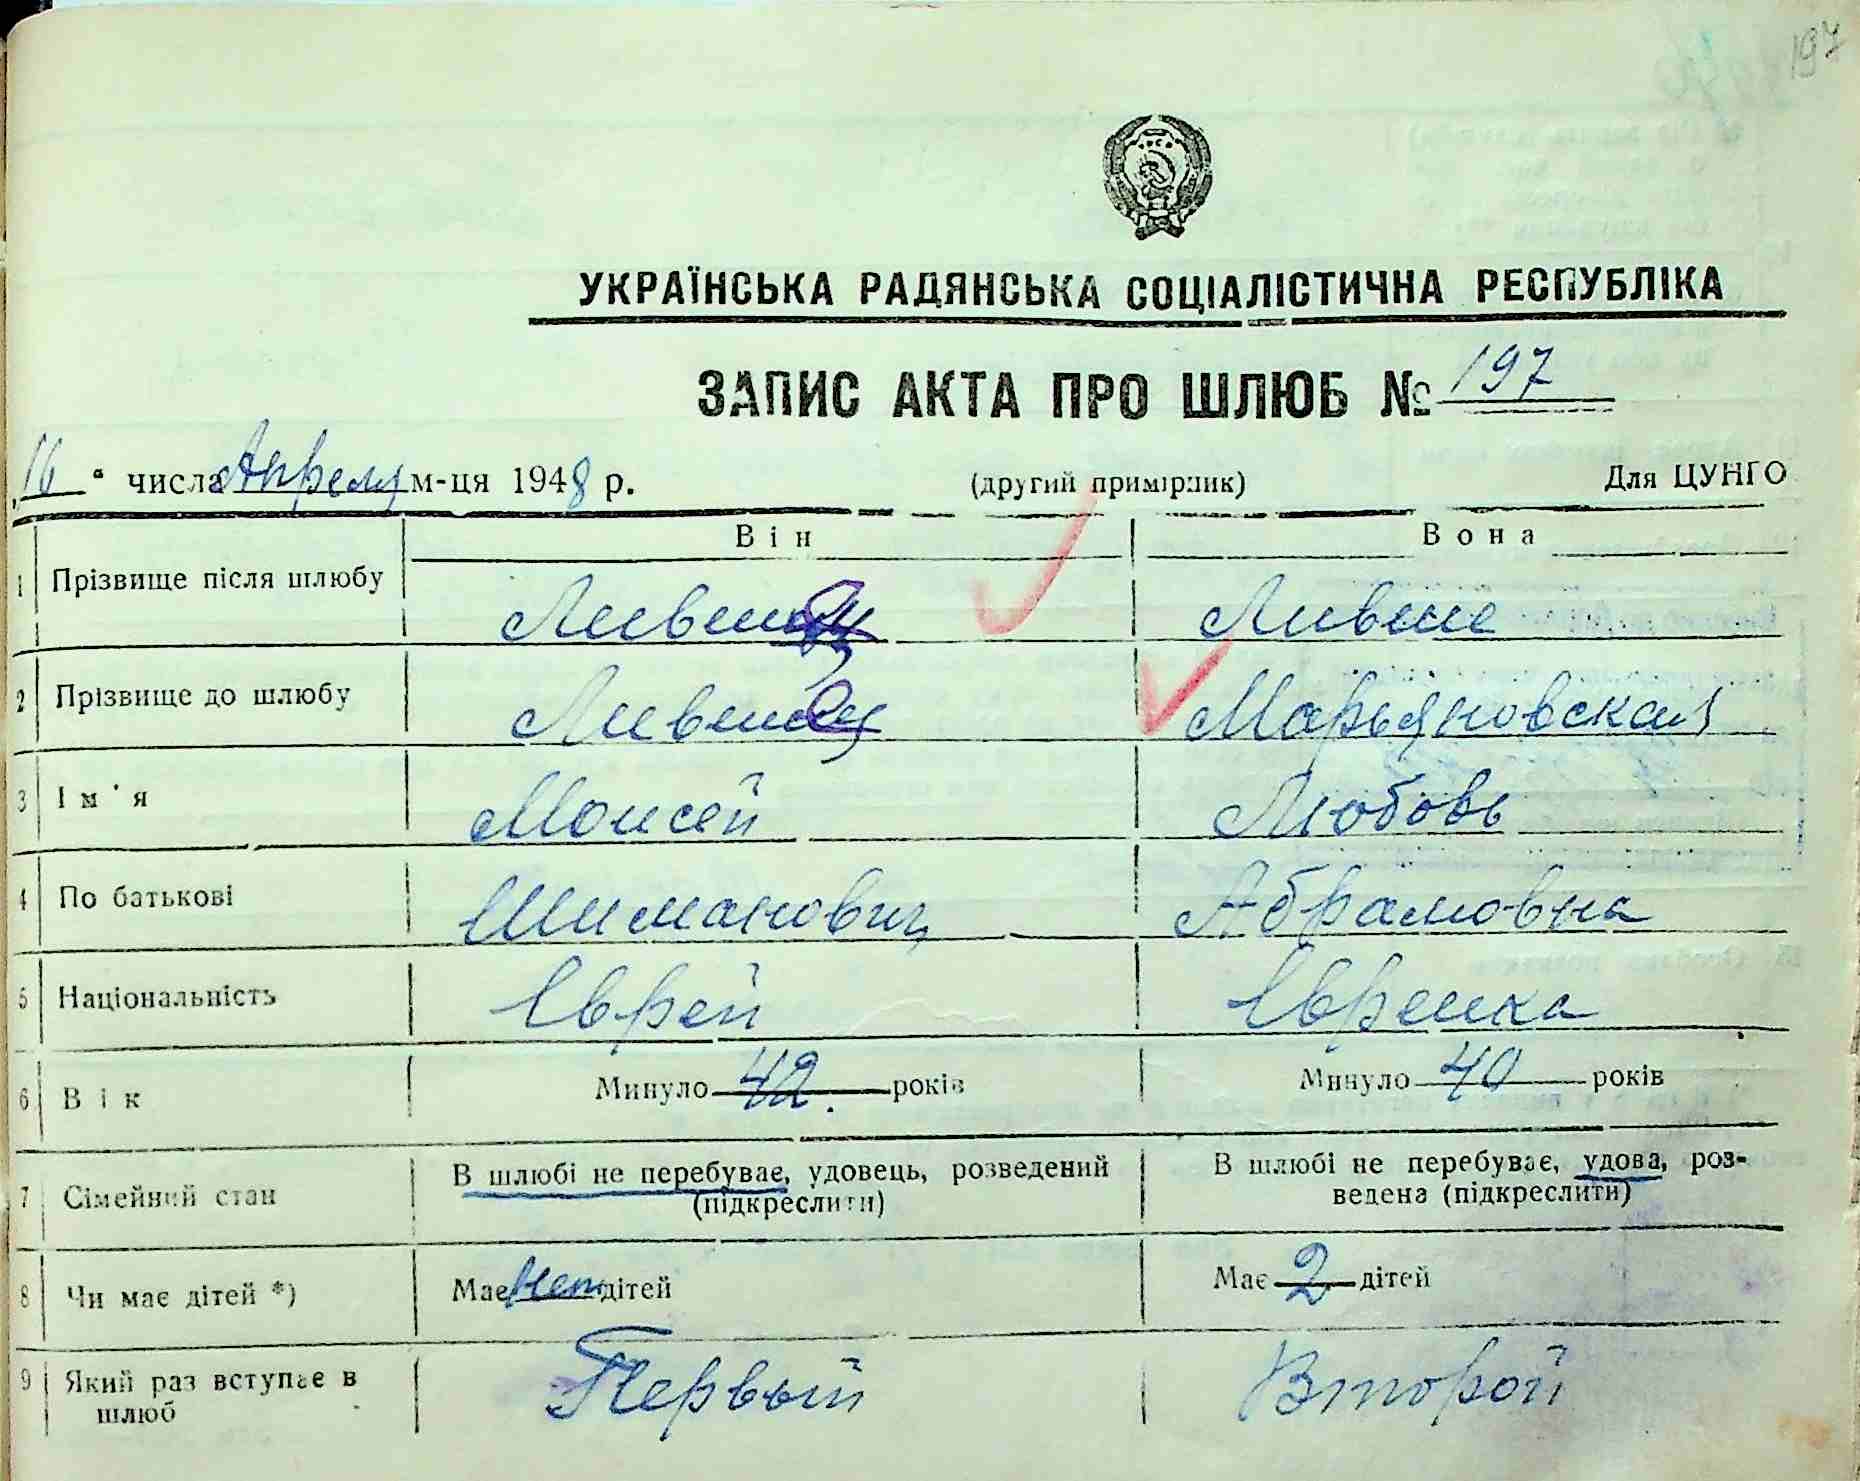 197
УКРАЇНСЬКА РАДЯНСЬКА СОЦІАЛІСТИЧНА РЕСПУБЛІКА
ЗАПИС АКТА ПРО ШЛЮБ № 197
„16“ числа Апреля м-ця 1948 р. (другий примірник) Для ЦУНГО
Він Вона
1 Прізвище після шлюбу Ливше
2 Прізвище до шлюбу Марьяновская
3 Ім'я Моисей Любовь
4 По батькові Шиманович Абрамовна
5 Національність Еврей Еврейка
6 Вік Минуло 42 років Минуло 40 років
7 Сімейний стан В шлюбі не перебуває, удовець, розведений (підкреслити) В шлюбі не перебуває, удова, роз-
ведена (підкреслити)
8 Чи має дітей *) Має Нет дітей Має 2 дітей
9 Який раз вступає в Первый Второй
шлюб